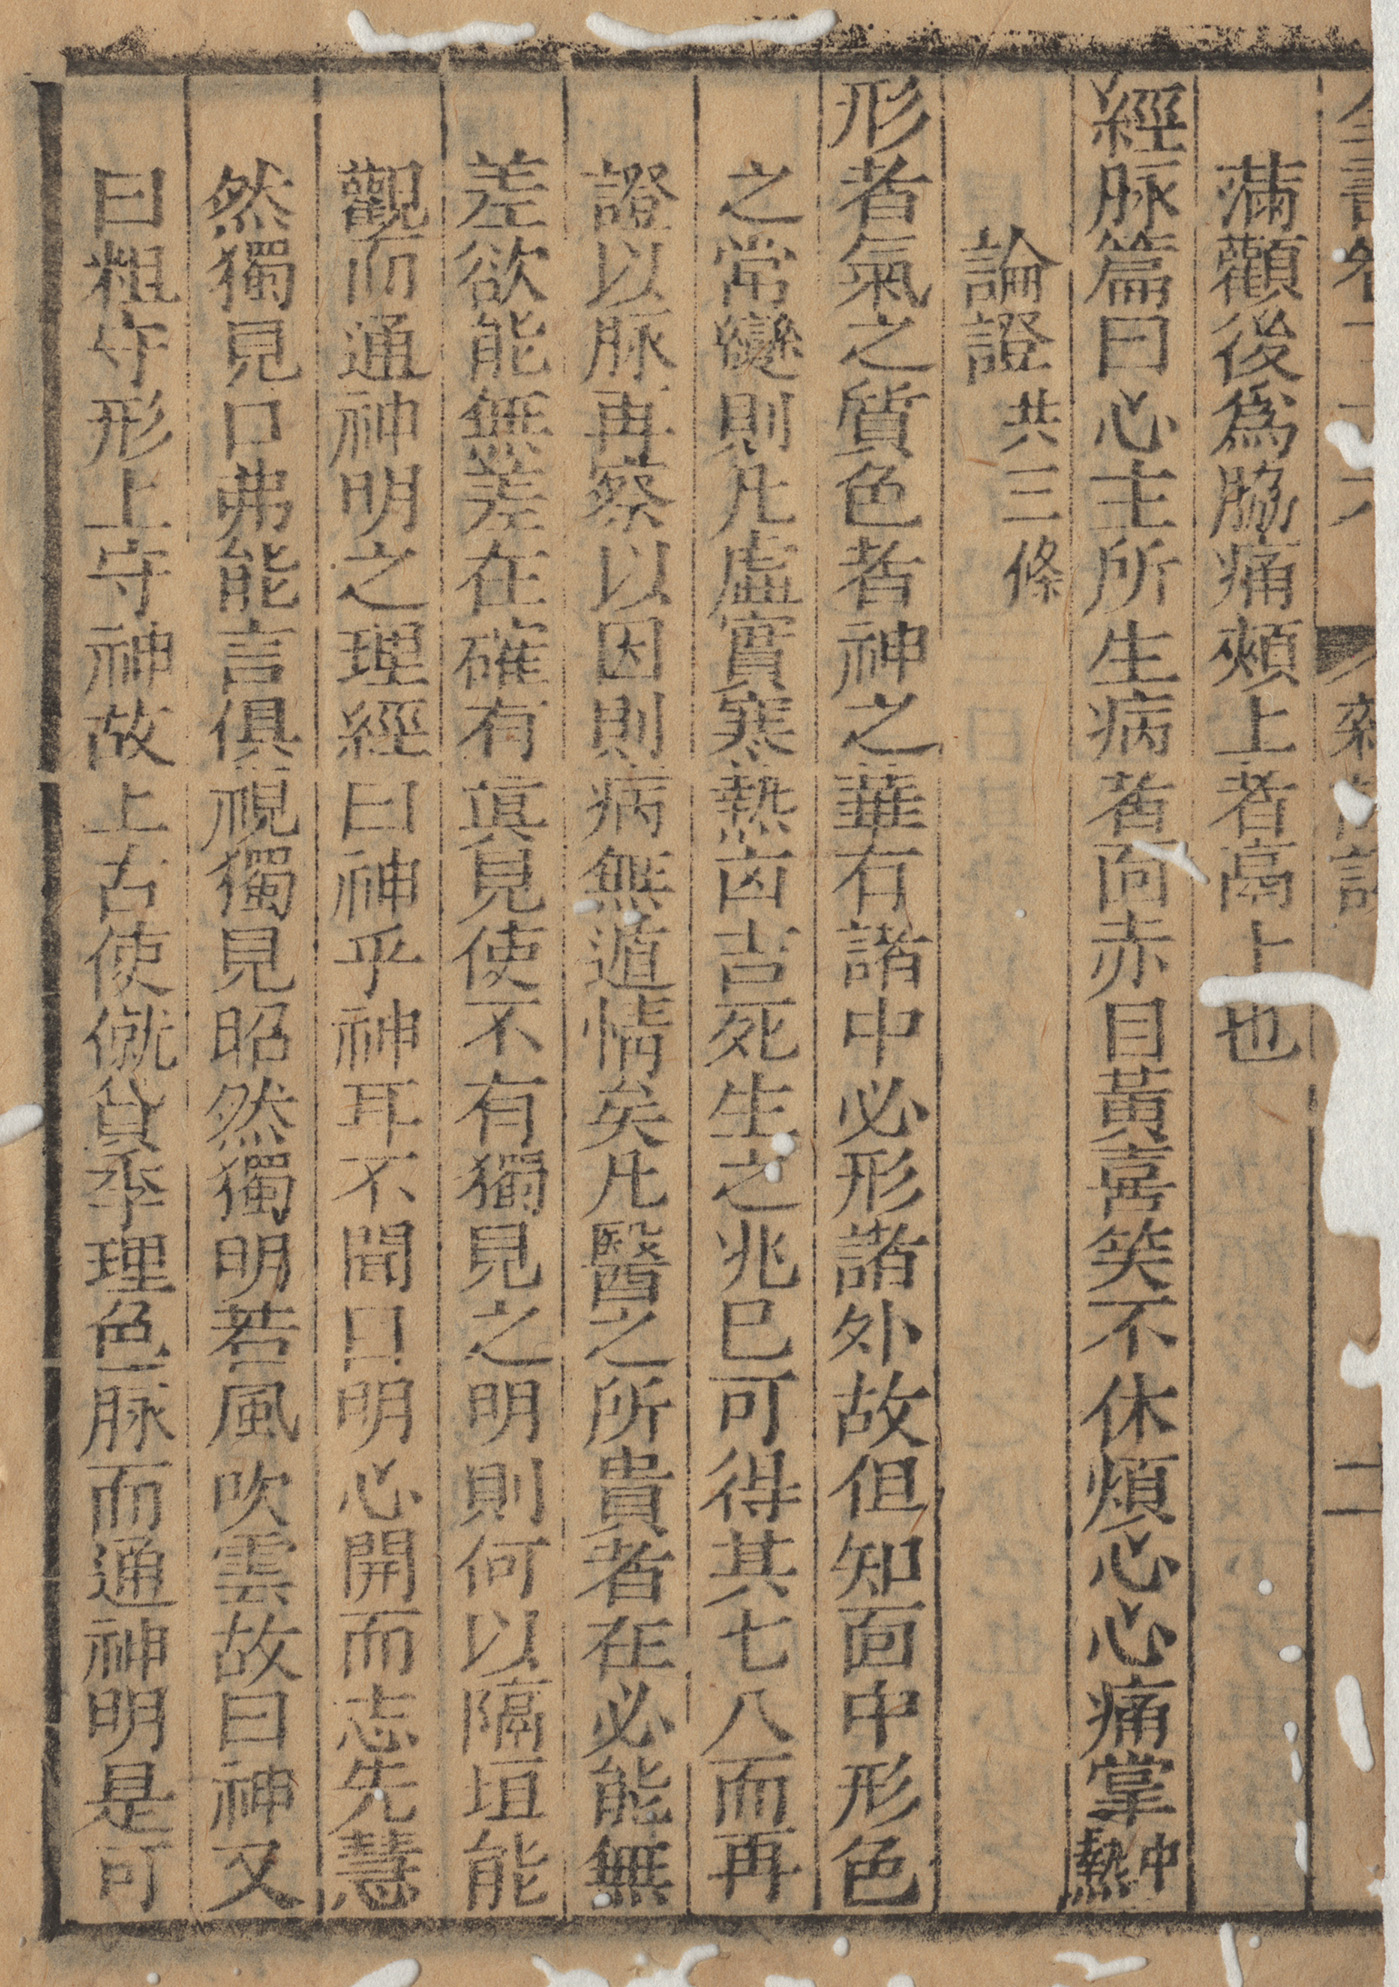 書卷二十六 雜 二
滿顴後爲脇痛頰上者鬲上也
經脉篇曰心主所生病者面赤目黃喜笑不休煩心心痛掌中熱
論證共三條
形者氣之質色者神之華有諸中必形諸外故但知面中形色
之常變則凡虛實寒熱凶吉死生之兆已可得其七八而再
證以脉再察以因則病無遁情矣凡醫之所貴者在必能無
差欲能無差在確有眞見使不有獨見之明則何以隔垣能
觀而通神明之理經曰神乎神耳不聞目明心開而志先慧
然獨見口弗能言俱視獨見昭然獨明若風吹雲故曰神又
曰粗守形上守神故上古使僦貸季理色脉而通神明是可